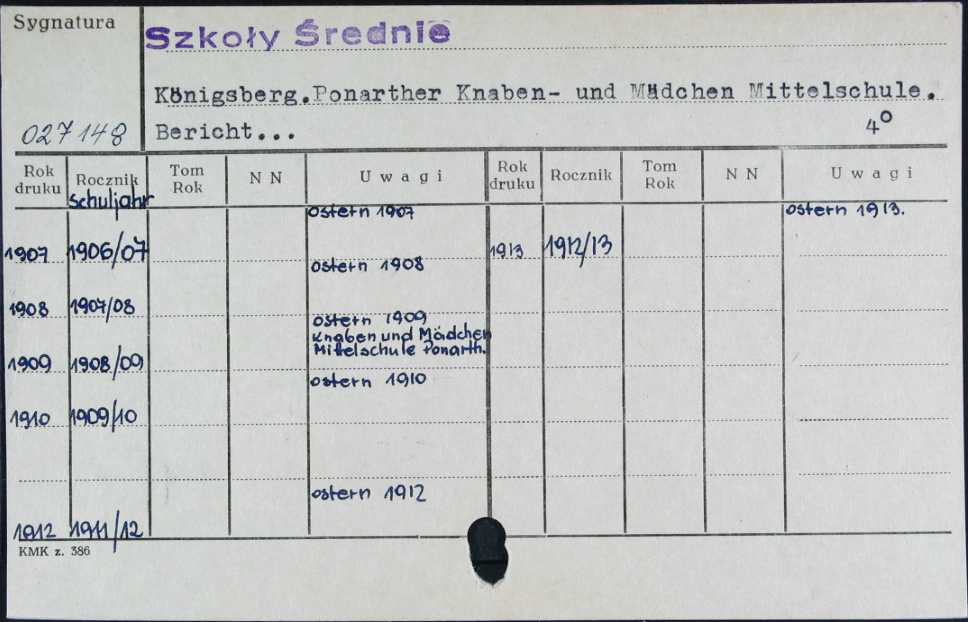 Sygnatura
Szkoły Średnie
Königsberg.Ponarther Knaben- und Mädchen Mittelschule.
027148 Bericht... 4°
Rok druku Rocznik Tom Rok N N Uwagi Rok druku Rocznik Tom Rok N N Uwagi
Schuljahr
1907 1906/07 Ostern 1907 1913 1912/13 Ostern 1913.
1908 1907/08 Ostern 1908
1909 1908/09 Ostern 1909
Knaben und Mädchen
Mittelschule Ponarth.
1910 1909/10 Ostern 1910
1912 1911/12 Ostern 1912
KMK z. 386